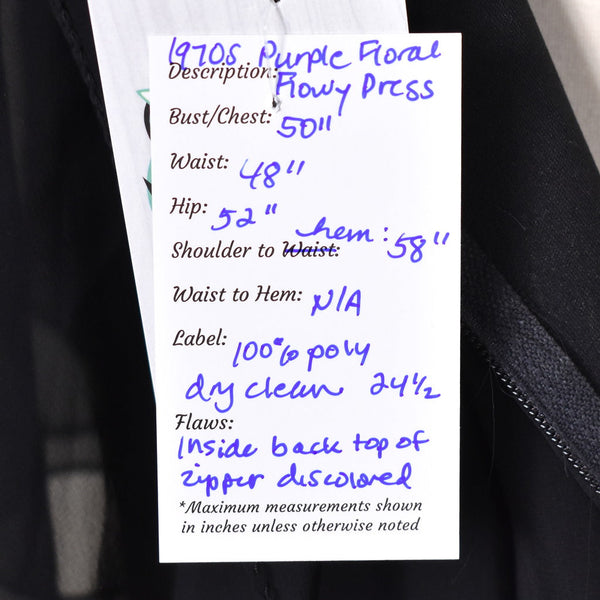 1970s Purple Floral
Description: Flowy Dress
Bust/Chest: 50"
Waist: 48"
Hip: 52"
Shoulder to Waist: hem: 58"
Waist to Hem: N/A
Label: 100% poly
dry clean 24½
Flaws:
Inside back top of
zipper discolored
*Maximum measurements shown
in inches unless otherwise noted